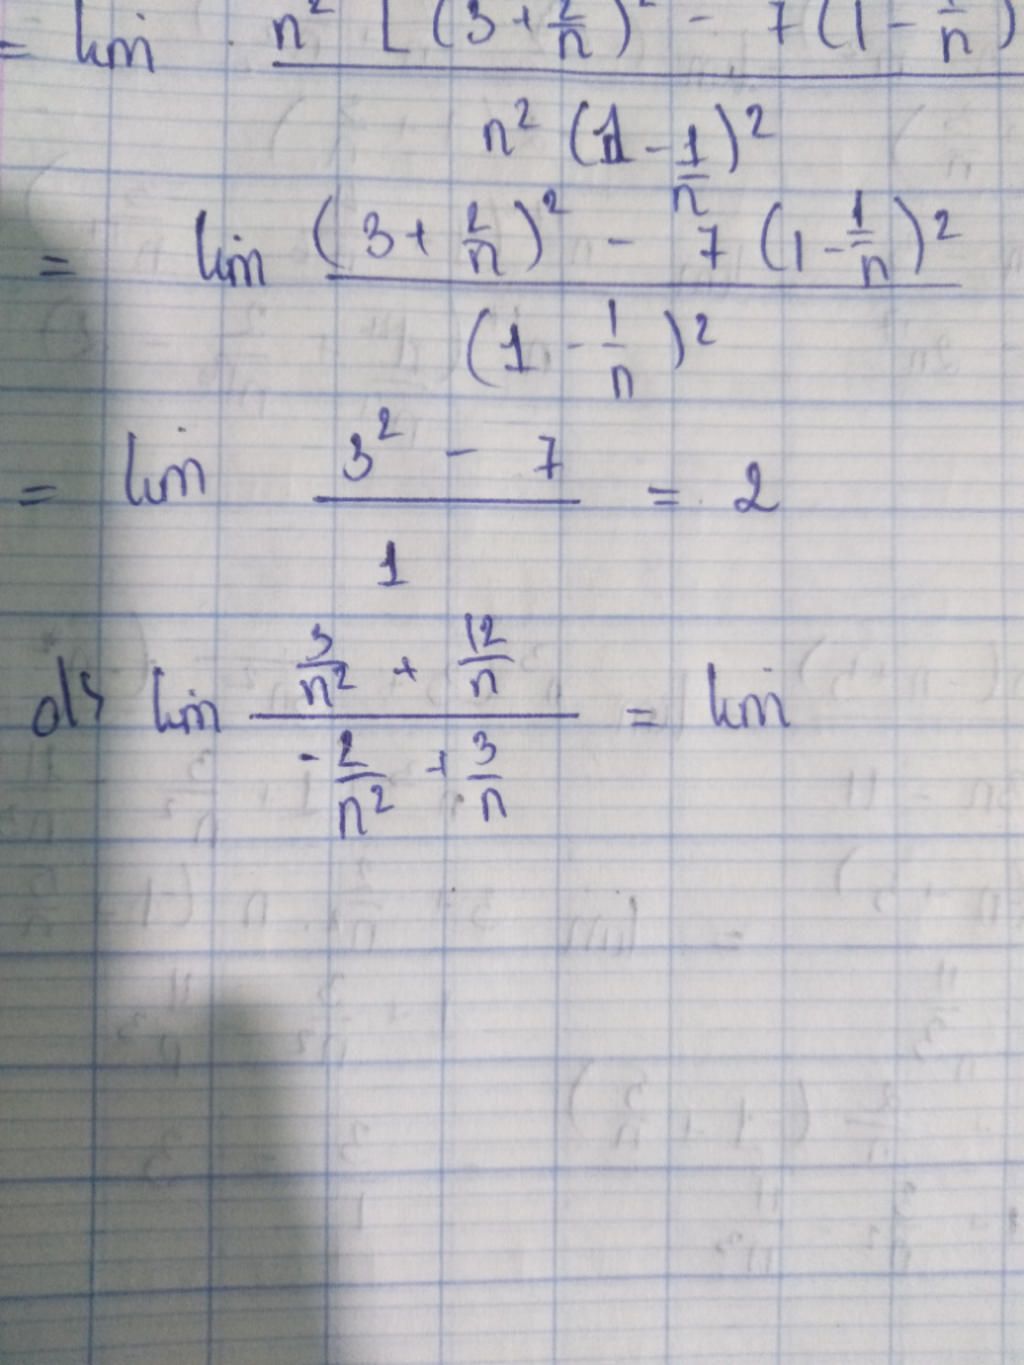 = lim n² [(3 + 2/n)² - 7(1 - 1/n)
n² (1 - 1/n)²
= lim (3 + 2/n)² - 7 (1 - 1/n)²
(1 - 1/n)²
= lim 3² - 7 = 2
1
d/s lim 3/n² + 12/n = lim
-2/n² + 3/n